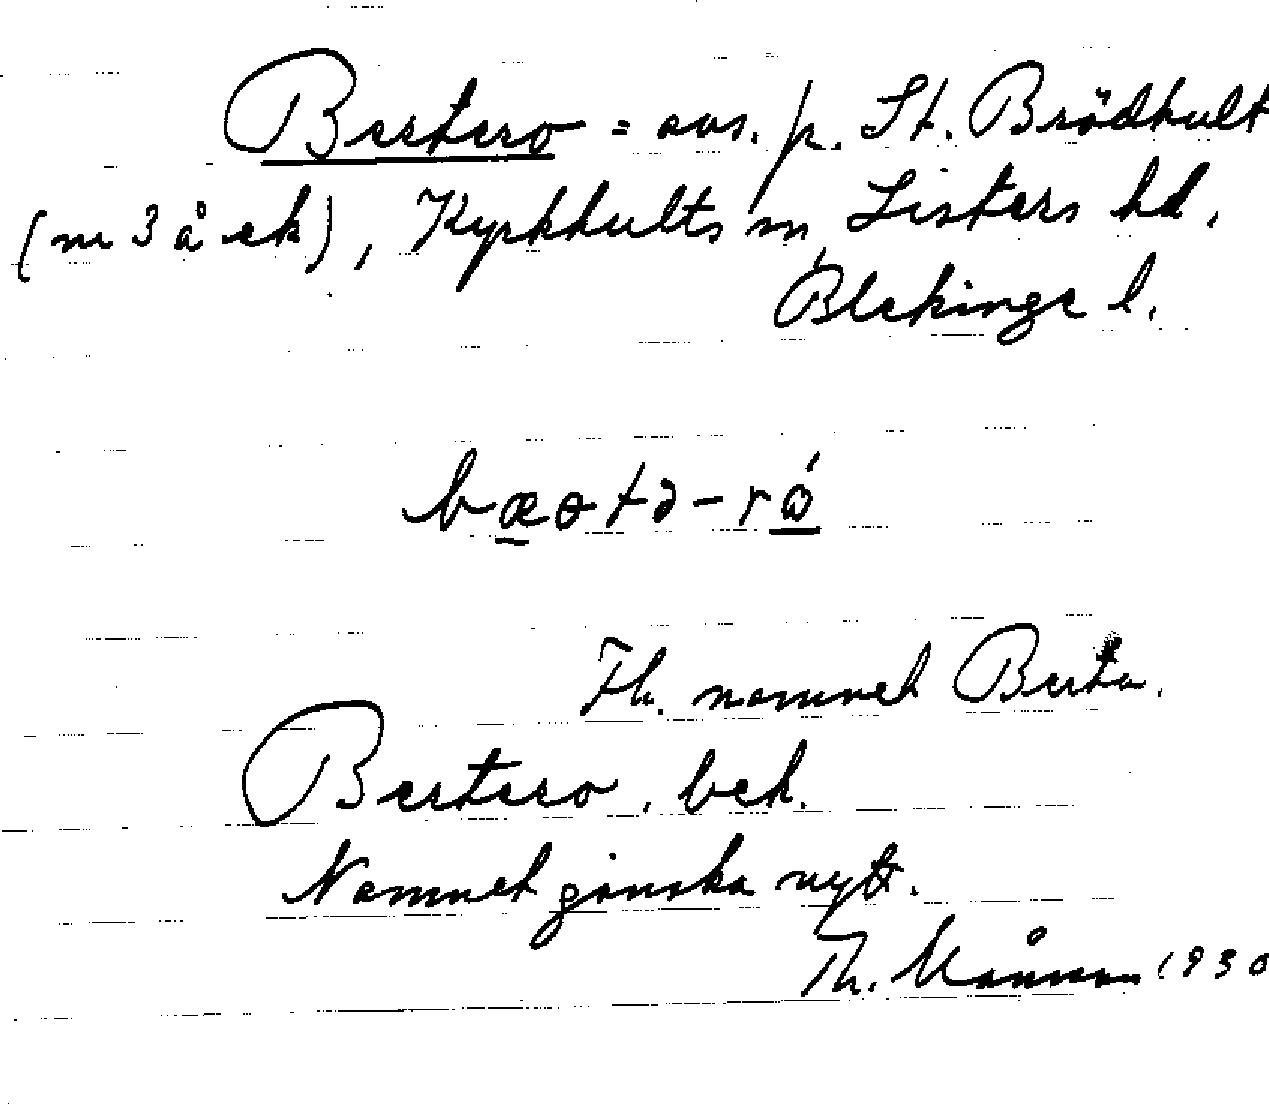 Bertero = avs. p. St. Brödhult
(nr 3 å ek), Kyrkhults sn, Listers hd,
Blekinge l.
bæotə-ró
Jfr. namnet Berta.
Bertero, bek.
Namnet ganska nytt.
Th. Månsson 1930